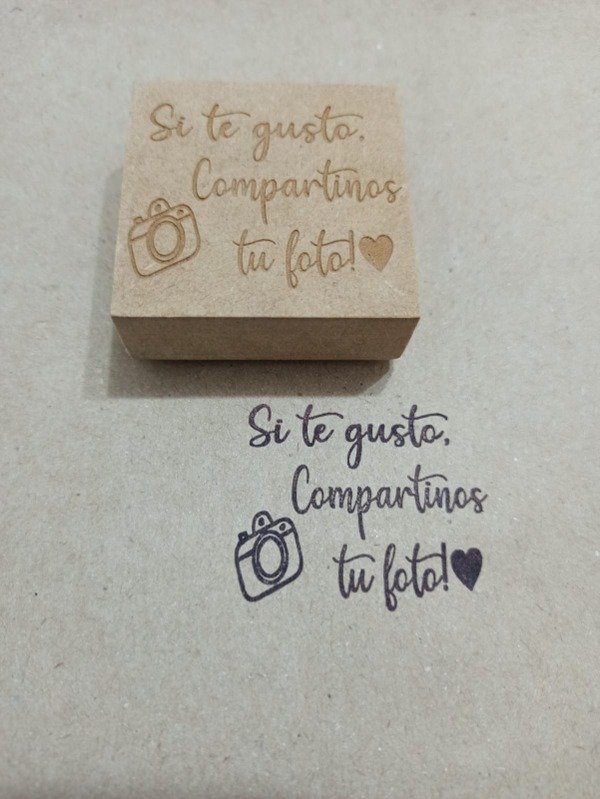 Si te gusto,
Compartinos
tu foto!
Si te gusto,
Compartinos
tu foto!